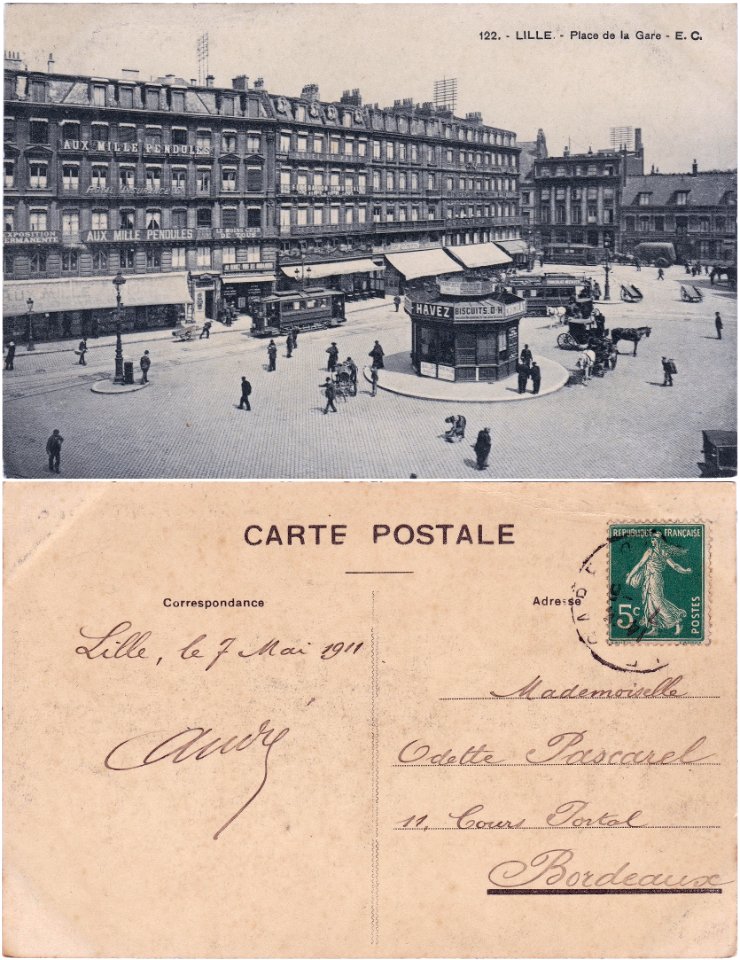 122. - LILLE. - Place de la Gare - E. C.
AUX MILLE PENDULES
EXPOSITION
PERMANENTE
AUX MILLE PENDULES
LE MOINS CHER
DE TOUS
HAVEZ
BISCUITS D-H
CARTE POSTALE
Correspondance
Adresse
REPUBLIQUE FRANÇAISE
5c
POSTES
GARE
Lille, le 7 Mai 1911
André
Mademoiselle
Odette Pascarel
11, Cours Portal
Bordeaux